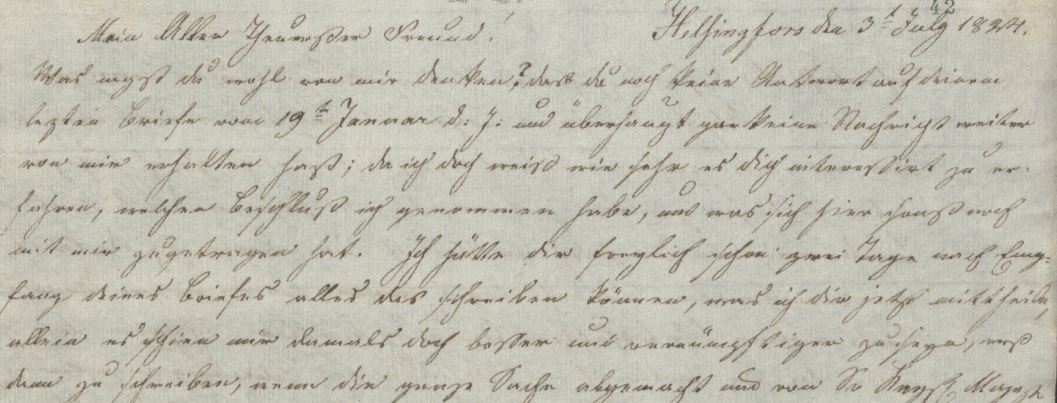 42
Mein Aller Theuerster Freund! Helsingfors den 3t July 1824.
Was magst du wohl von mir denken, daß du noch keine Antwort auf deinem
lezten Briefe vom 19t Januar d: J: und überhaupt gar keine Nachricht weiter
von mir erhalten hast; da ich doch weiß wie sehr es dich interessirt zu er-
fahren, welchen Beschluß ich genommen habe, und was sich hier sonst noch
mit mir zugetragen hat. Ich hätte dir freylich schon zwei Tage nach Emp-
fang deines Briefes alles das schreiben können, was ich dir jetzt mittheile,
allein es schien mir damals doch besser und vernünftiger zu seyn, erst
dann zu schreiben, wenn die ganze Sache abgemacht und von Sr Kays. Majest